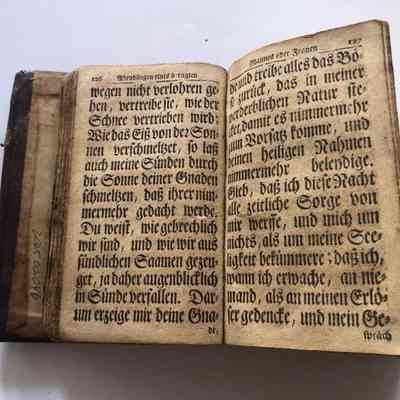 126
wegen nicht verlohren ge-
hen, vertreibe sie, wie der
Schnee vertrieben wird:
Wie das Eiß von der Son-
nen verschmeltzet, so laß
auch meine Sünden durch
die Sonne deiner Gnaden
schmeltzen, daß ihrer nim-
mermehr gedacht werde.
Du weist, wie gebrechlich
wir sind, und wie wir aus
sündlichen Saamen gezeu-
get, ja daher augenblicklich
in Sünde verfallen. Dar-
um erzeige mir deine Gna-
de,
Mannes oder Frauen 127
de und treibe alles das Bö-
se zurück, das in meiner
verderblichen Natur ste-
cket, damit es nimmermehr
zum Vorsatz komme, und
deinen heiligen Nahmen
nimmermehr beleidige.
Gieb, daß ich diese Nacht
alle zeitliche Sorge von
mir werffe, und mich um
nichts, als um meine See-
ligkeit bekümmere; daß ich,
wann ich erwache, an nie-
mand, als an meinen Erlö-
ser gedencke, und mein Ge-
spräch